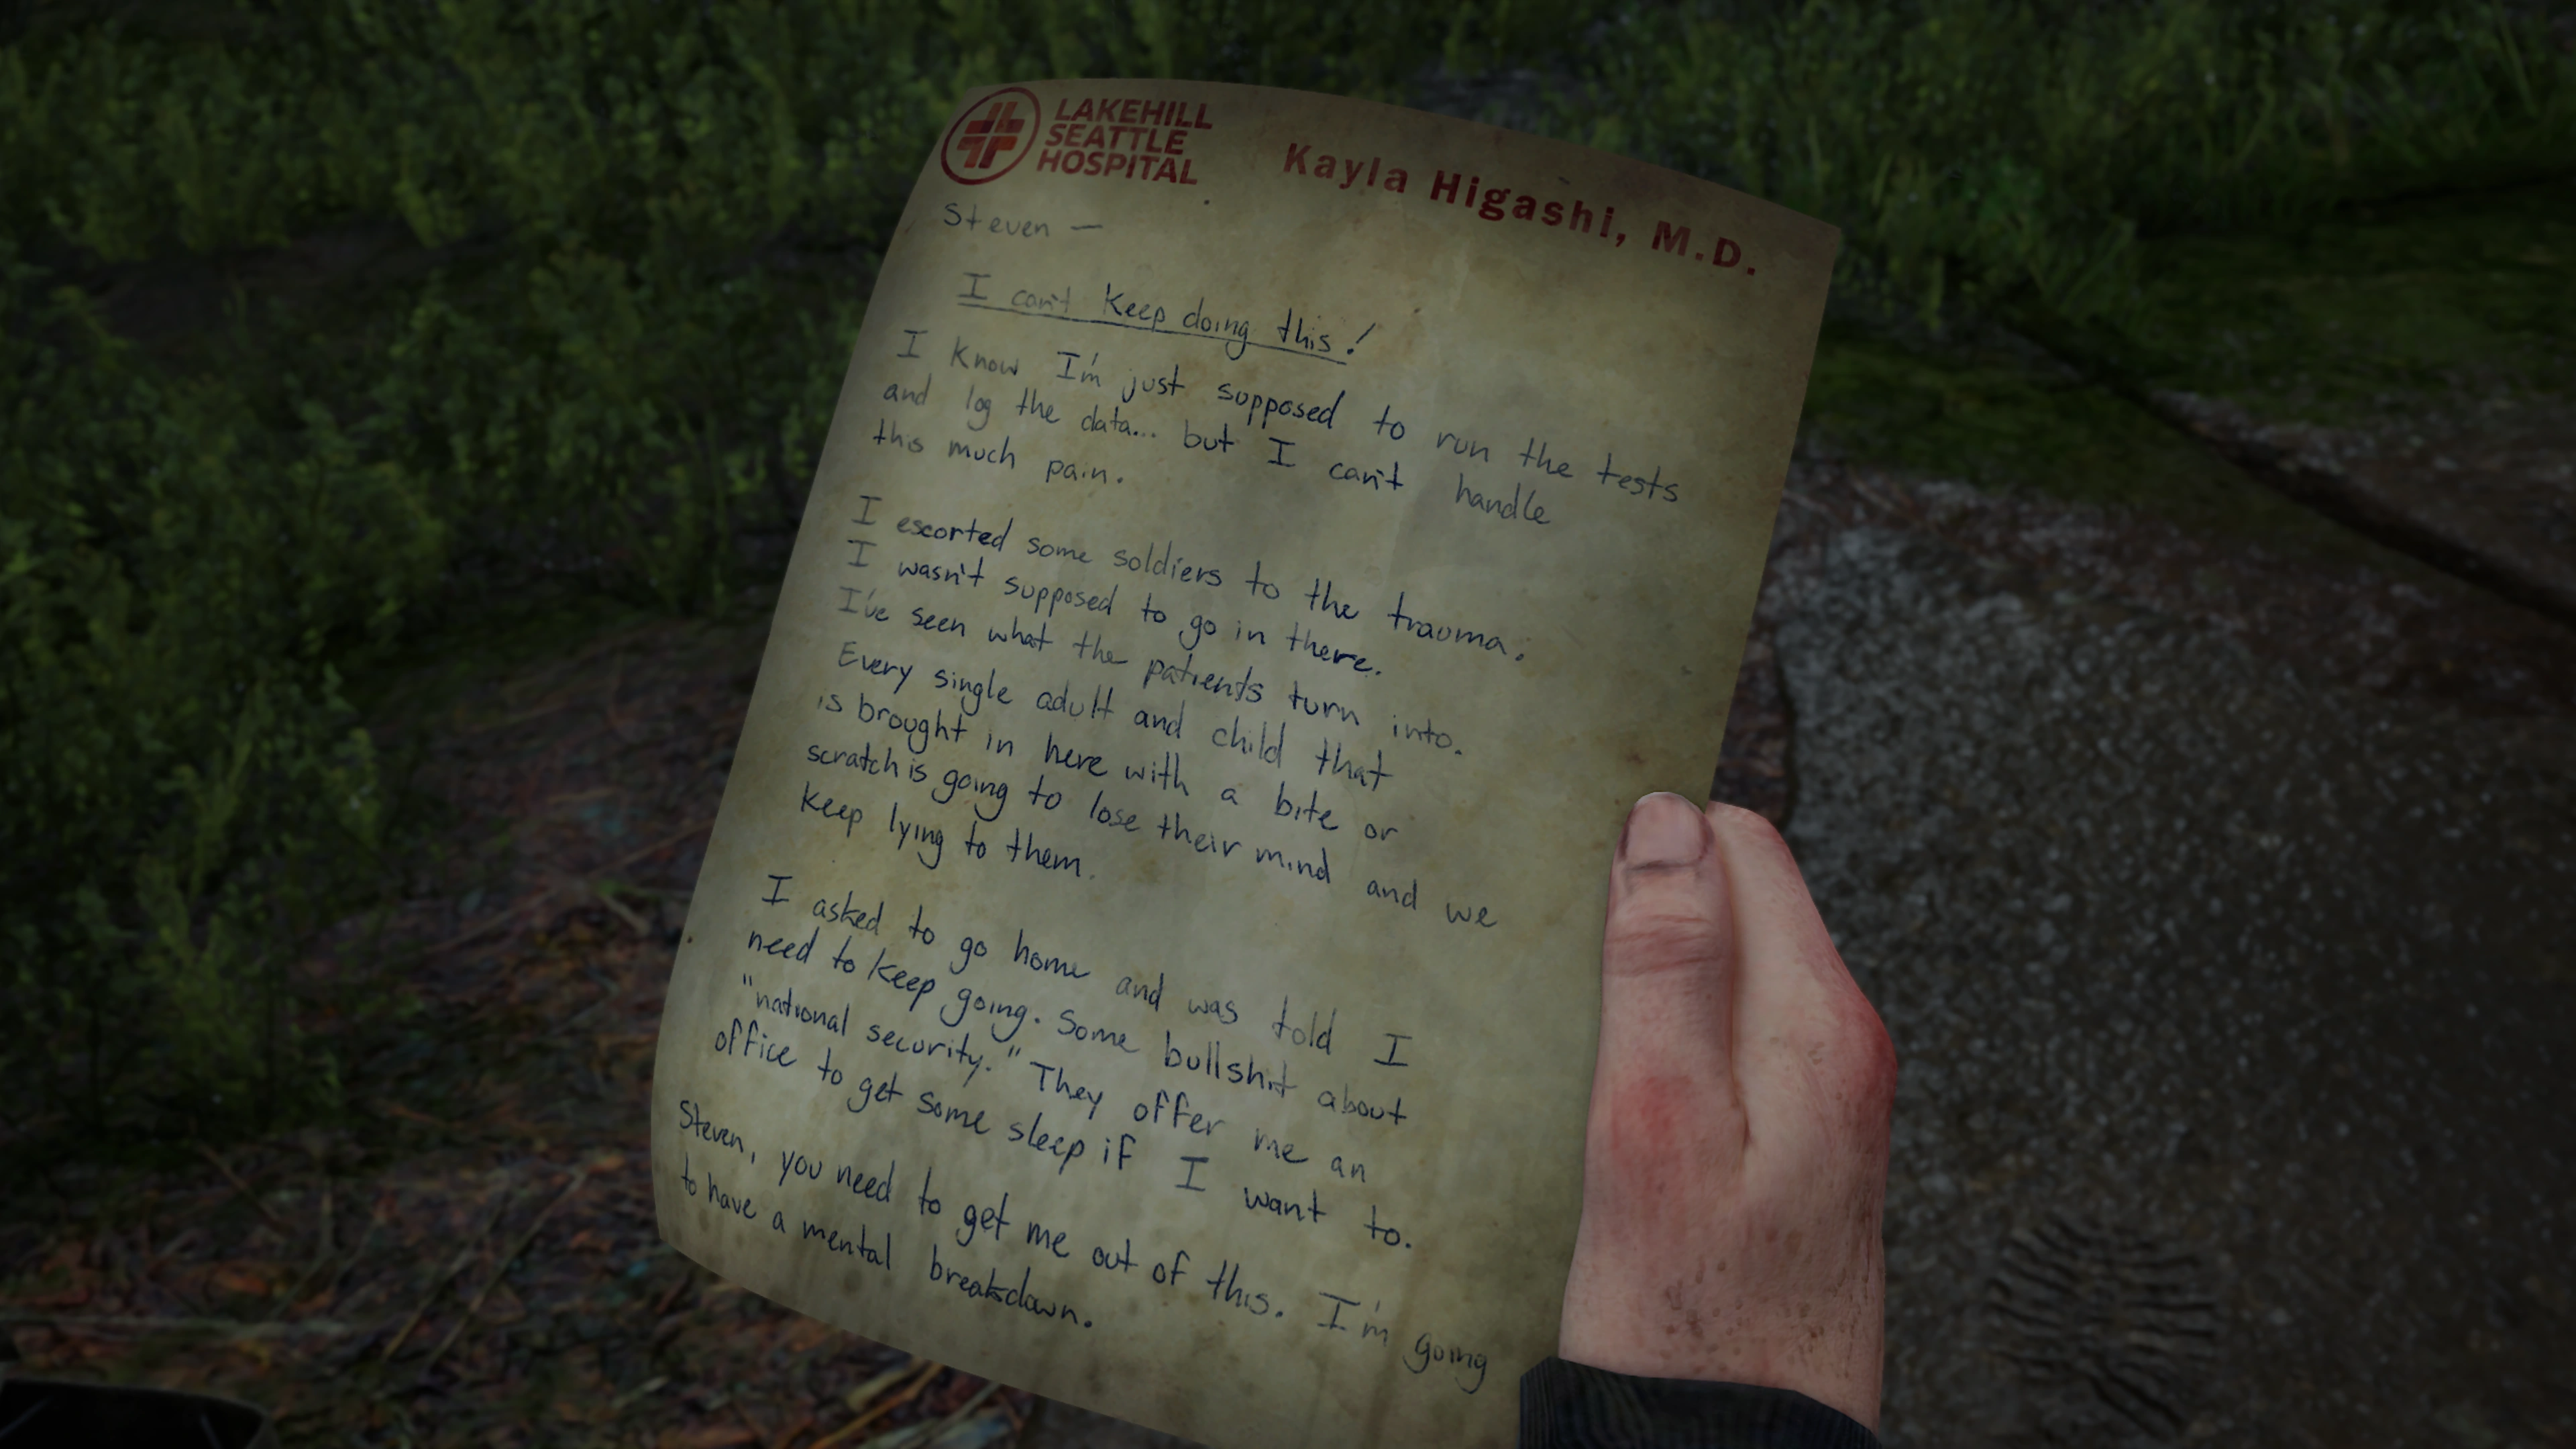 LAKEHILL
SEATTLE
HOSPITAL
Kayla Higashi, M.D.
Steven —
I can't keep doing this!
I know I'm just supposed to run the tests
and log the data... but I can't handle
this much pain.
I escorted some soldiers to the trauma.
I wasn't supposed to go in there.
I've seen what the patients turn into.
Every single adult and child that
is brought in here with a bite or
scratch is going to lose their mind and we
keep lying to them.
I asked to go home and was told I
need to keep going. Some bullshit about
"national security." They offer me an
office to get some sleep if I want to.
Steven, you need to get me out of this. I'm going
to have a mental breakdown.